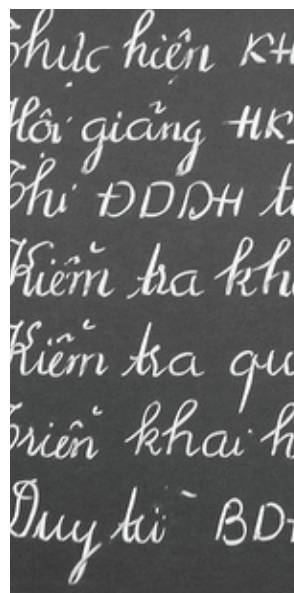 Thực hiện KH
Hội giảng HK
Thi ĐDDH t
Kiểm tra kh
Kiểm tra qu
Triển khai h
Duy trì BD